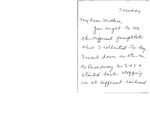 Tuesday
My dear Mother,
You ought to see
the different pamphlets
that I collected to-day
I went down in the
to Broadway No 345 &
started back stopping
in at different railroad